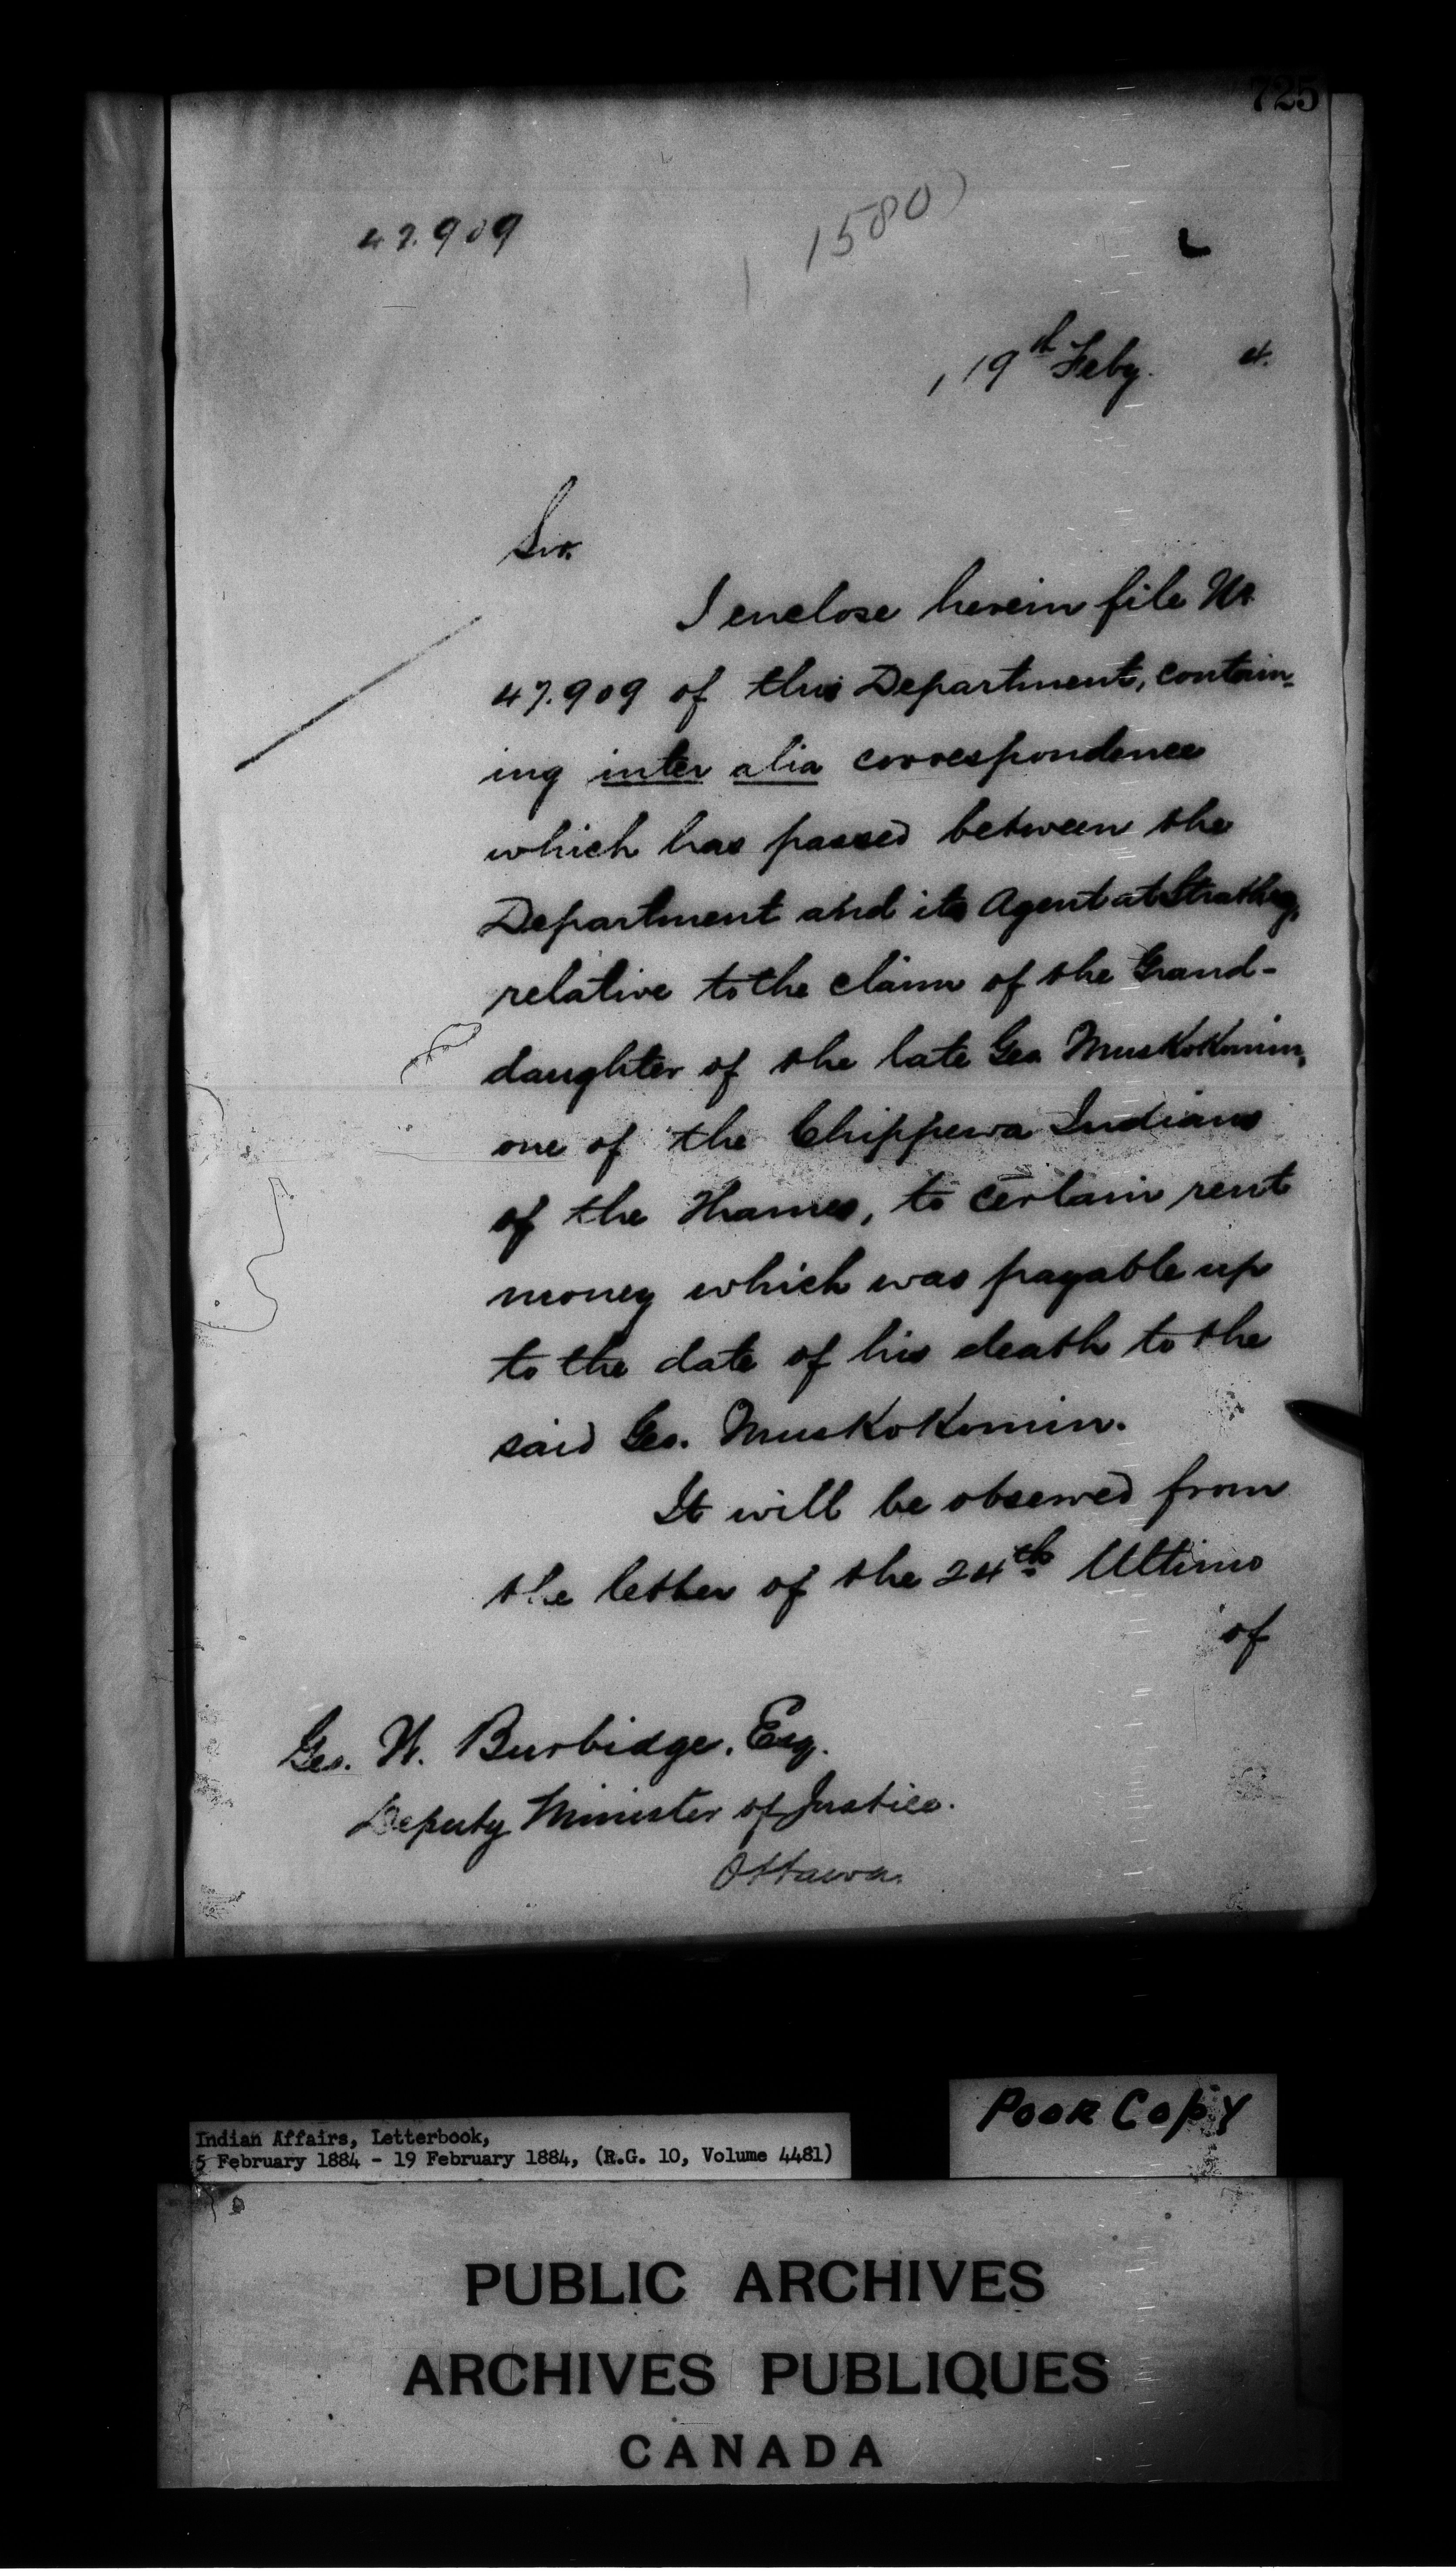 725
47.909
1580)
, 19th Feby. 4.
Sir.
I enclose herein file No
47.909 of this Department, contain-
ing inter alia correspondence
which has passed between the
Department and its Agent at Strathroy,
relative to the claim of the Grand-
daughter of the late Geo Muskokomin,
one of the Chippewa Indians
of the Thames, to certain rent
money which was payable up
to the date of his death to the
said Geo. Muskokomin.
It will be observed from
the letter of the 24th Ultimo
of
Geo. W. Burbidge, Esq.
Deputy Minister of Justice.
Ottawa.
POOR COPY
Indian Affairs, Letterbook,
5 February 1884 - 19 February 1884, (R.G. 10, Volume 4481)
PUBLIC ARCHIVES
ARCHIVES PUBLIQUES
CANADA